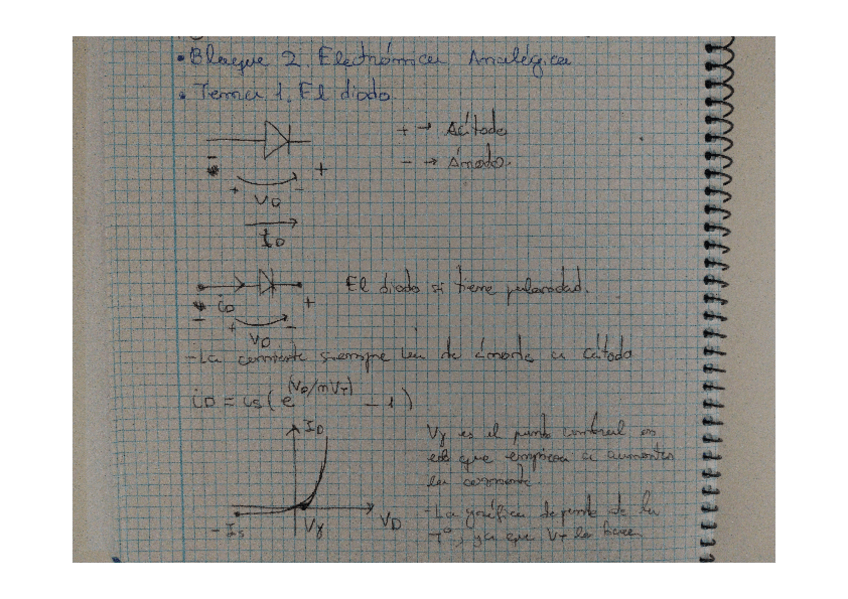 • Bloque 2. Electrónica Analógica
• Tema 1. El diodo.
+ → Cátodo
- → Ánodo.
- +
+ -
VD
ID
El diodo si tiene polaridad.
iD +
- + -
VD
- La corriente siempre va de ánodo a cátodo
iD = is(e^(VD/nVT) - 1)
ID
Vγ es el punto umbral en
que empieza a aumentar
la corriente.
- La gráfica depende de la
Tº, ya que VT lo hace.
-Is Vγ VD